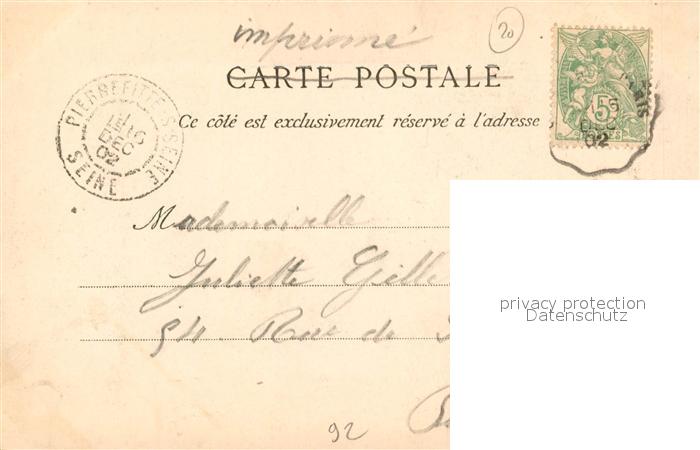 imprimé
20
CARTE POSTALE
PIERREFITTE-S-SEINE
DEC
02
SEINE
5
PARIS
DEC
02
Ce côté est exclusivement réservé à l'adresse
Mademoiselle
Juliette Gille
54 Rue de
privacy protection
Datenschutz
92